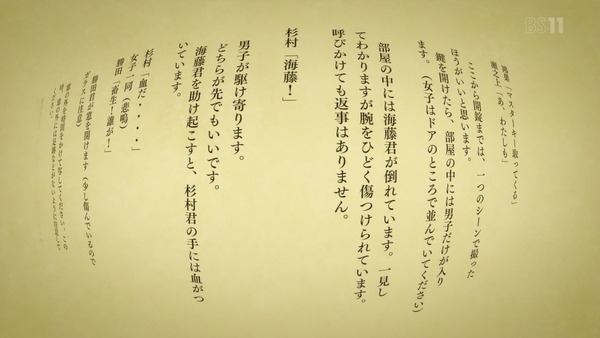 BS11
鴻巣「マスターキー取ってくる」
瀬之上「あ、わたしも」
ここから開錠までは、一つのシーンで撮った
ほうがいいと思います。
鍵を開けたら、部屋の中には男子だけが入り
ます。（女子はドアのところで並んでいてください）
部屋の中には海藤君が倒れています。一見し
てわかりますが腕をひどく傷つけられています。
呼びかけても返事はありません。
杉村「海藤！」
男子が駆け寄ります。
どちらが先でもいいです。
海藤君を助け起こすと、杉村君の手には血がつ
いています。
杉村「血だ・・・・」
女子一同（悲鳴）
勝田「畜生！誰が！」
勝田君が窓を開けます（少し傷んでいるので
ガラスに注意）